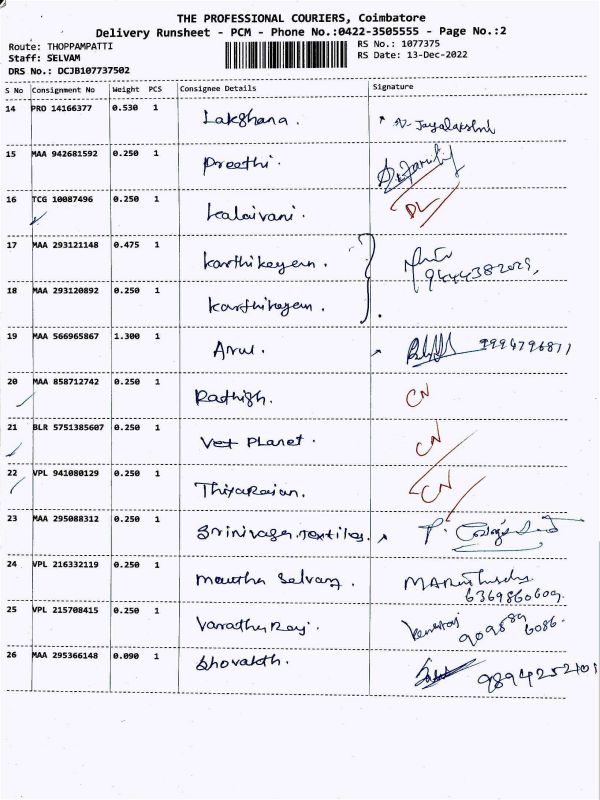 THE PROFESSIONAL COURIERS, Coimbatore
Delivery Runsheet - PCM - Phone No.:0422-3505555 - Page No.:2
Route: THOPPAMPATTI
RS No.: 1077375
Staff: SELVAM
RS Date: 13-Dec-2022
DRS No.: DCJB107737502
S No Consignment No Weight PCS Consignee Details Signature
14 PRO 14166377 0.530 1 Lakghana. N. Jayalakshmi
15 MAA 942681592 0.250 1 Preethi.
16 TCG 10087496 0.250 1 kalaivani. DL
17 MAA 293121148 0.475 1 karthikeyan.
18 MAA 293120892 0.250 1 karthikeyan.
19 MAA 566965867 1.300 1 Arul.
20 MAA 858712742 0.250 1 CN
21 BLR 5751385607 0.250 1 Vet PLanet. CN
22 VPL 941080129 0.250 1 CN
23 MAA 295088312 0.250 1 Srinivasa textiles.
24 VPL 216332119 0.250 1
6369860609.
25 VPL 215708415 0.250 1
26 MAA 295366148 0.090 1
9894252101